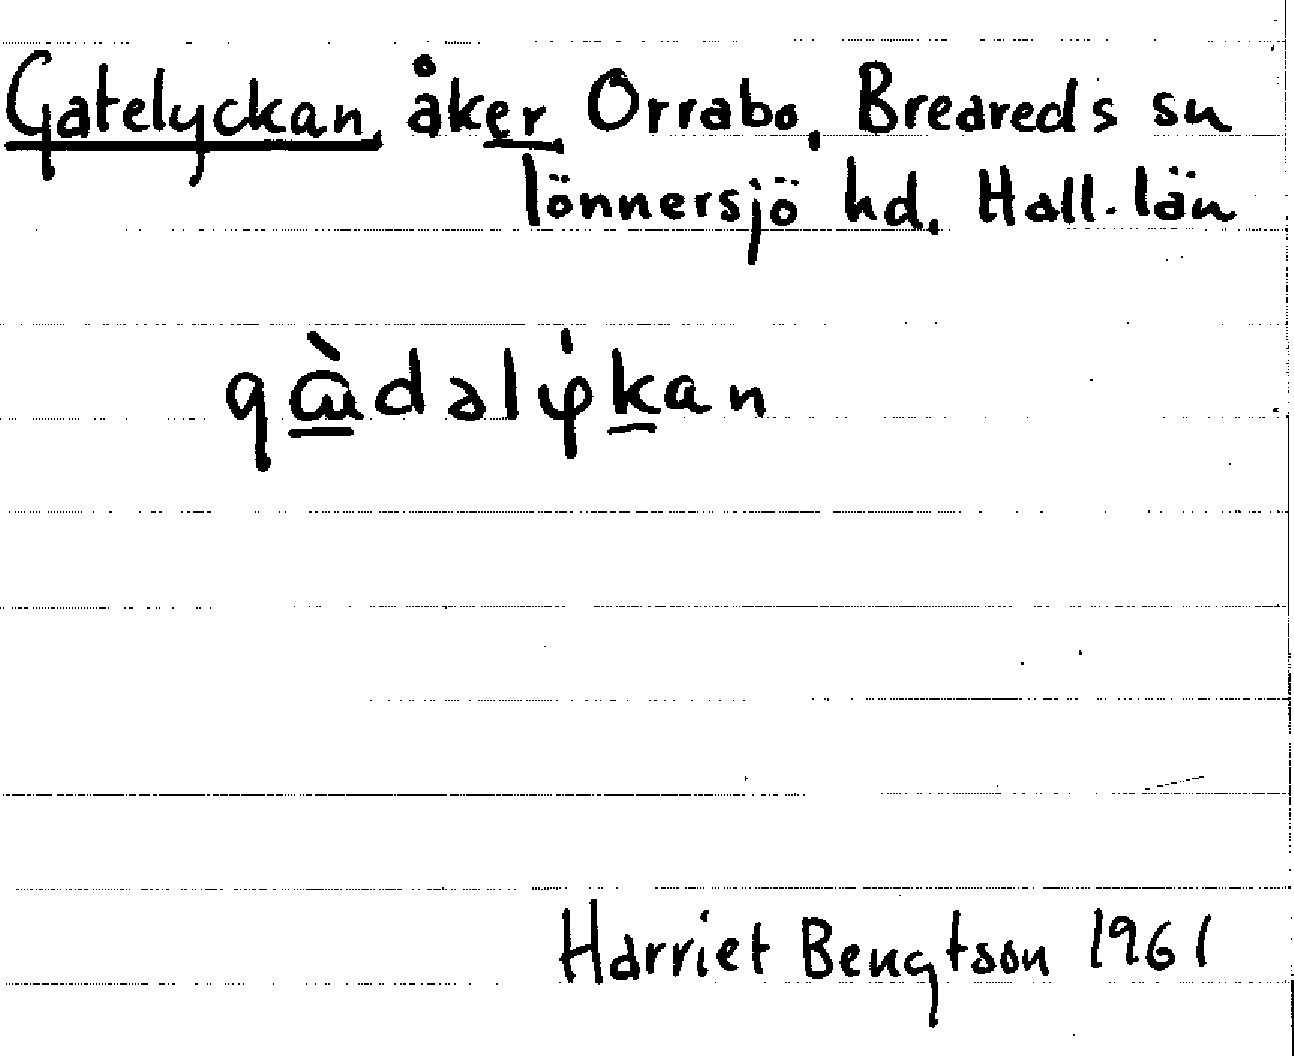 Gatelyckan, åker, Orrabo, Breareds sn
lönnersjö hd. Hall. län
gɑ̀dəlykan
Harriet Bengtson 1961